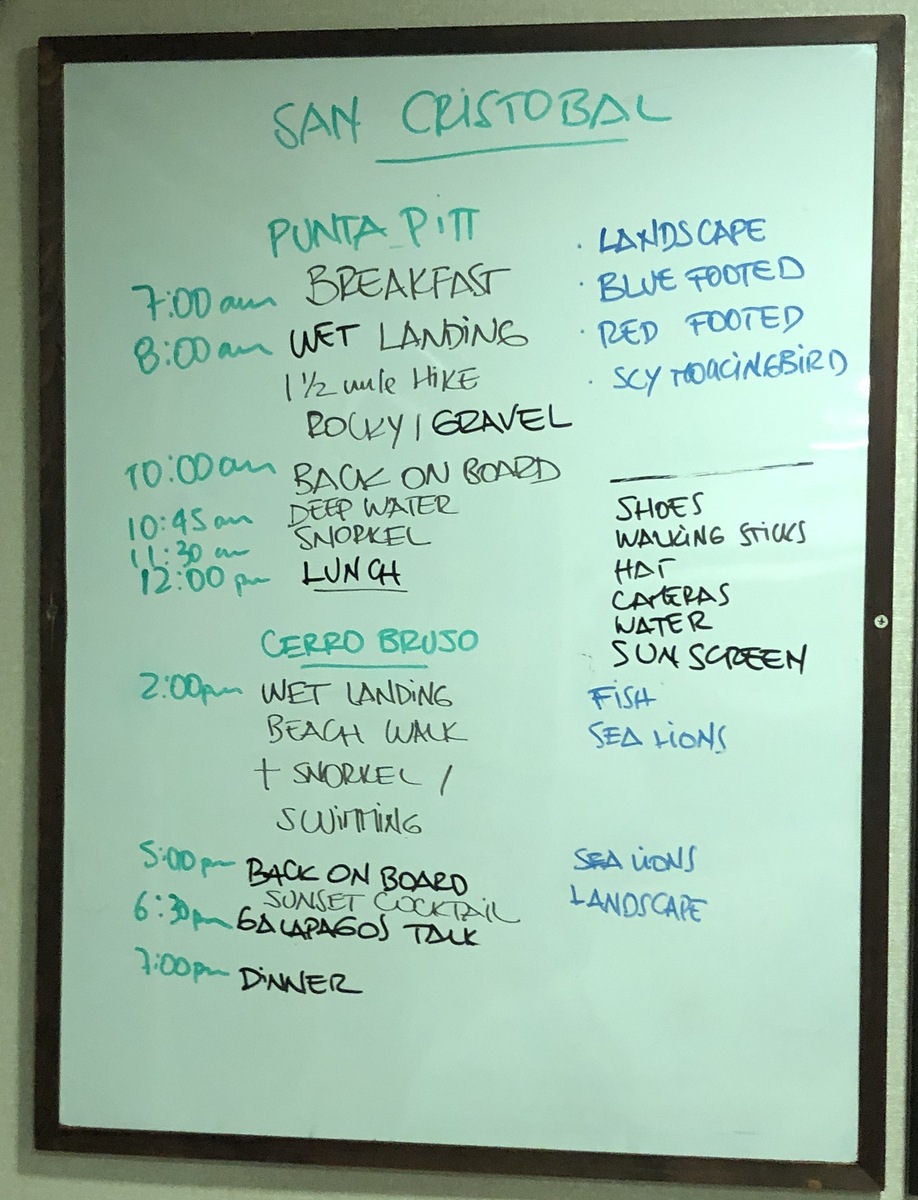 SAN CRISTOBAL
PUNTA PITT
7:00 am BREAKFAST
8:00 am WET LANDING
1 1/2 mile HIKE
ROCKY / GRAVEL
10:00 am BACK ON BOARD
10:45 am DEEP WATER
SNORKEL
11:30 am
12:00 pm LUNCH
· LANDSCAPE
· BLUE FOOTED
· RED FOOTED
· SCY MOACINGBIRD
SHOES
WALKING STICKS
HAT
CAMERAS
WATER
SUNSCREEN
CERRO BRUJO
2:00pm WET LANDING
BEACH WALK
+ SNORKEL /
SWIMMING
FISH
SEA LIONS
5:00 pm BACK ON BOARD
SUNSET COCKTAIL
6:30pm GALAPAGOS TALK
7:00pm DINNER
SEA LIONS
LANDSCAPE